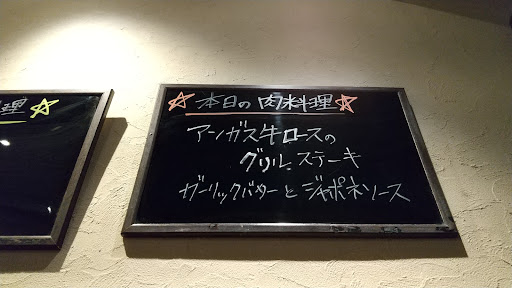 理☆
☆本日の肉料理☆
アンガス牛ロースの
グリル、ステーキ
ガーリックバターとジャポネソース